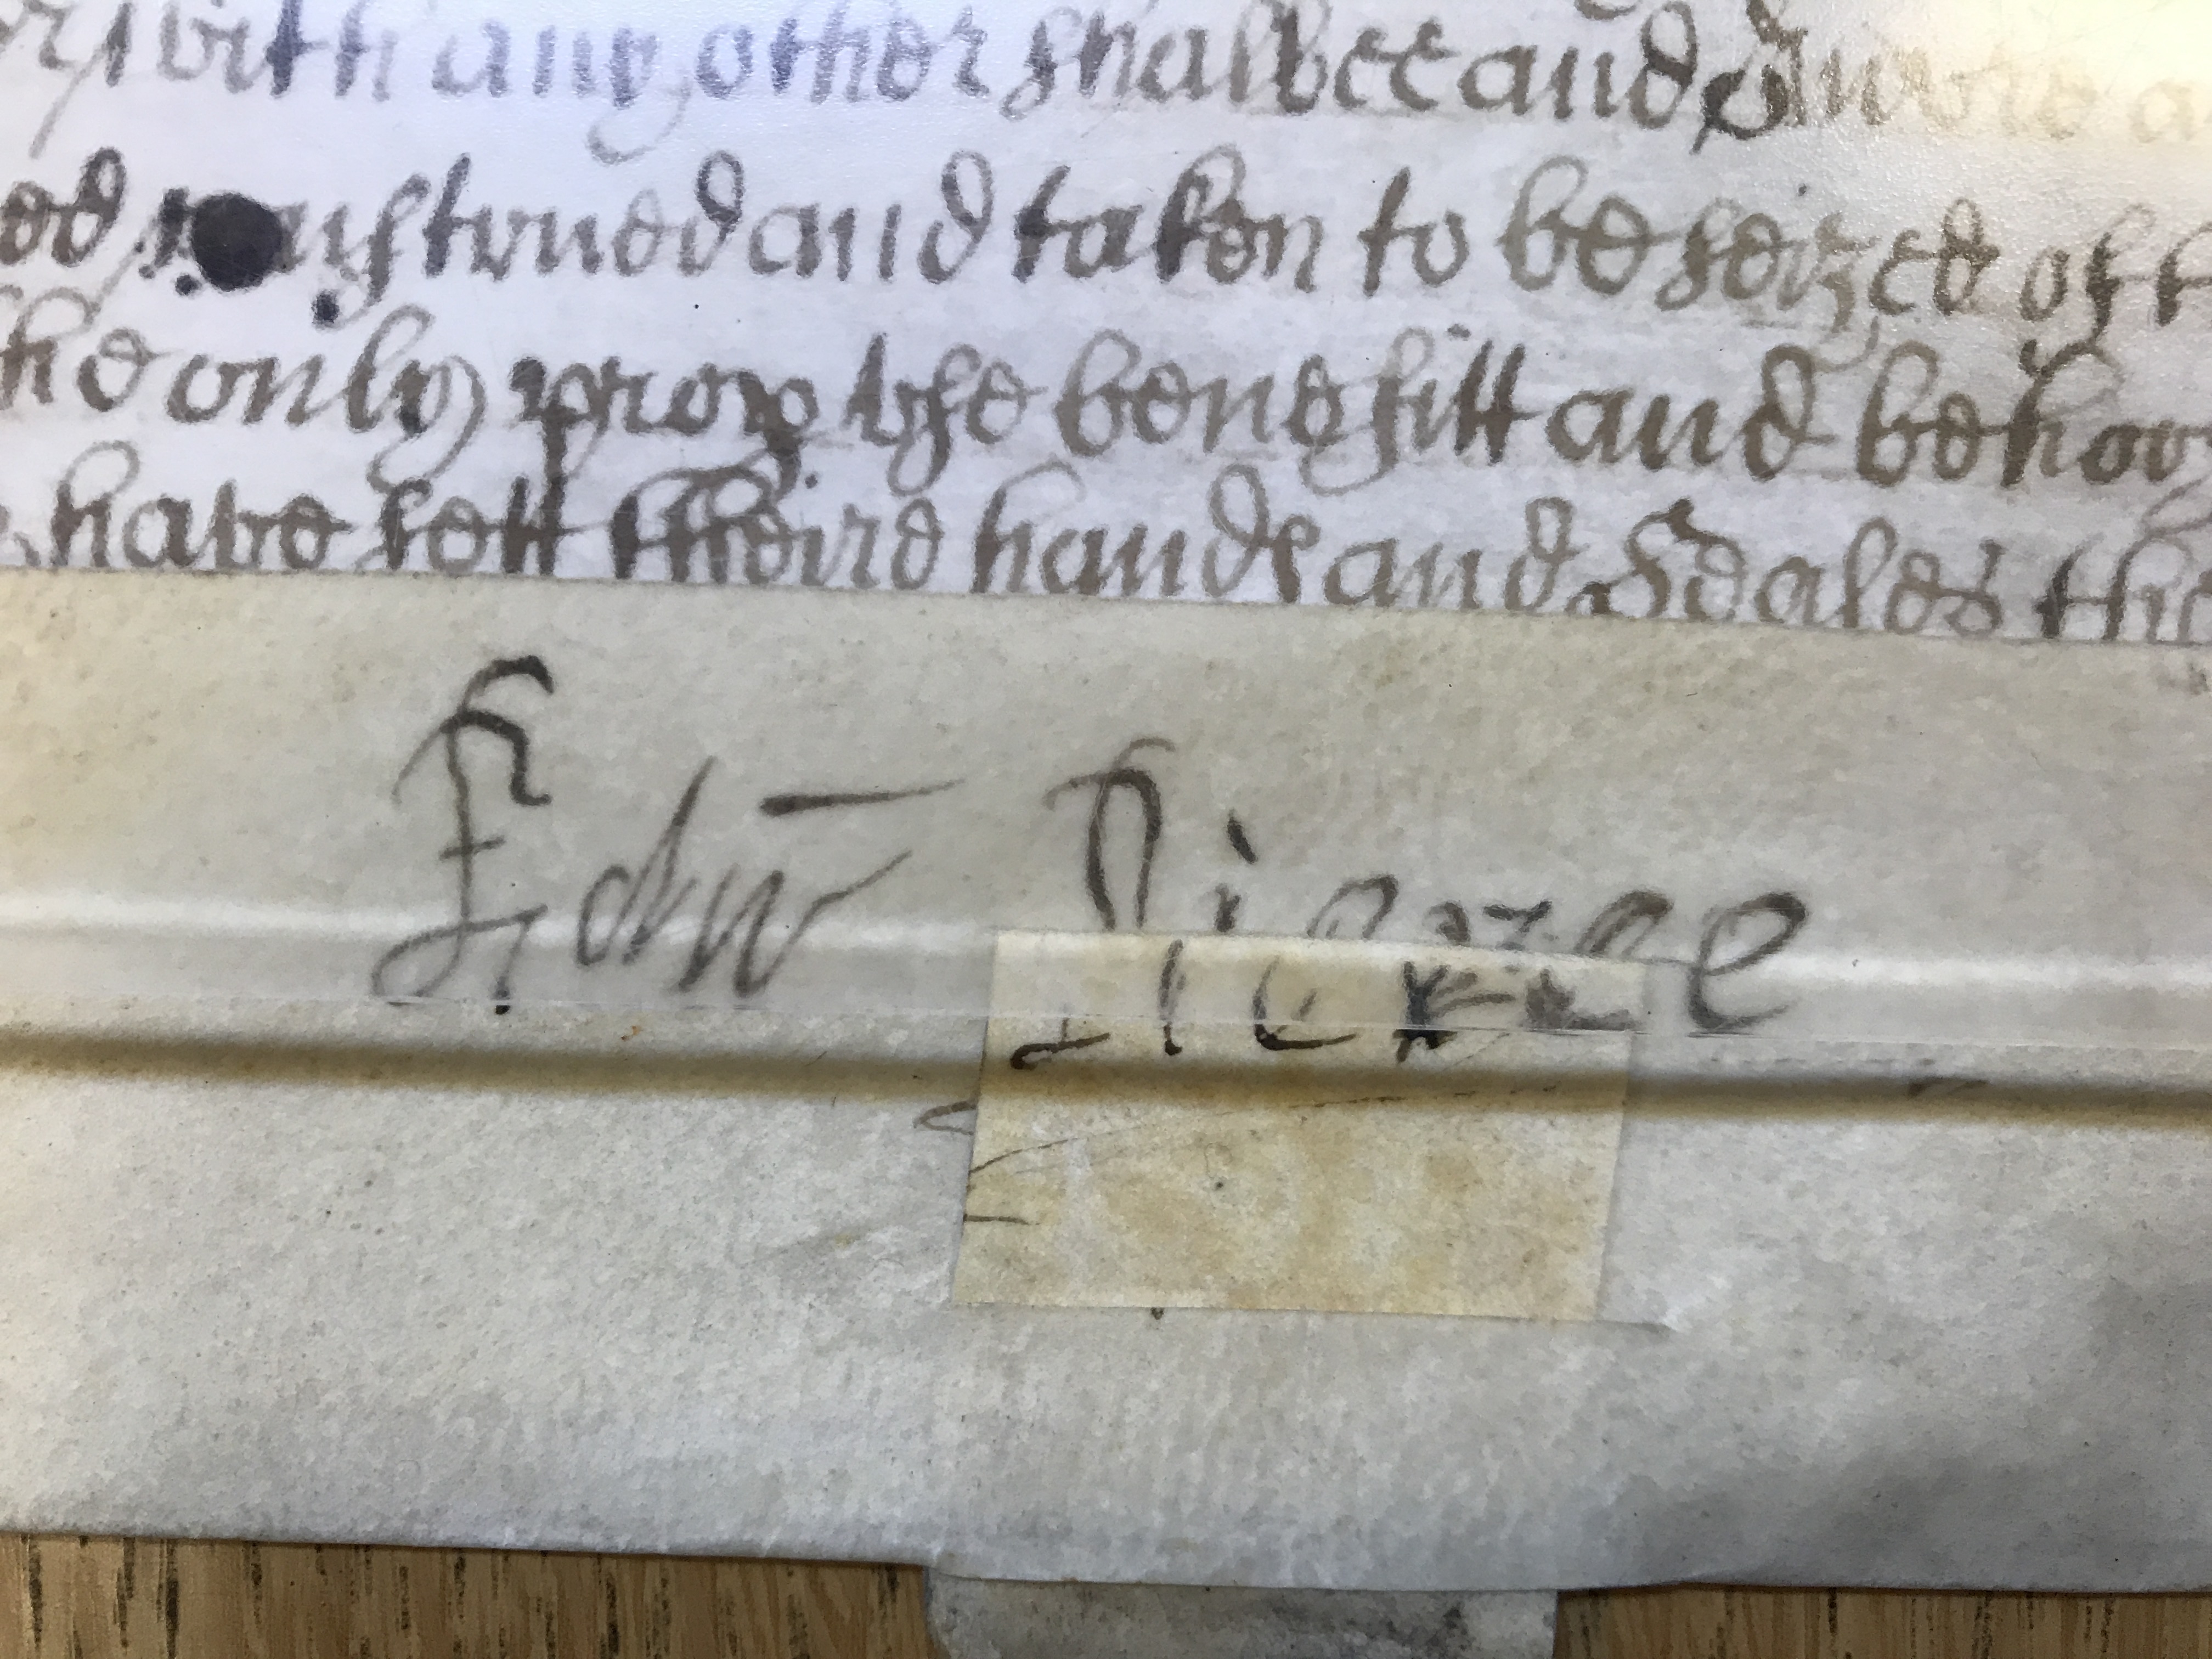 with any other shalbee and
construed and taken to be seized of
only prop use benefitt and behoo
have sett theire hands and Seales the
Edw Pierce